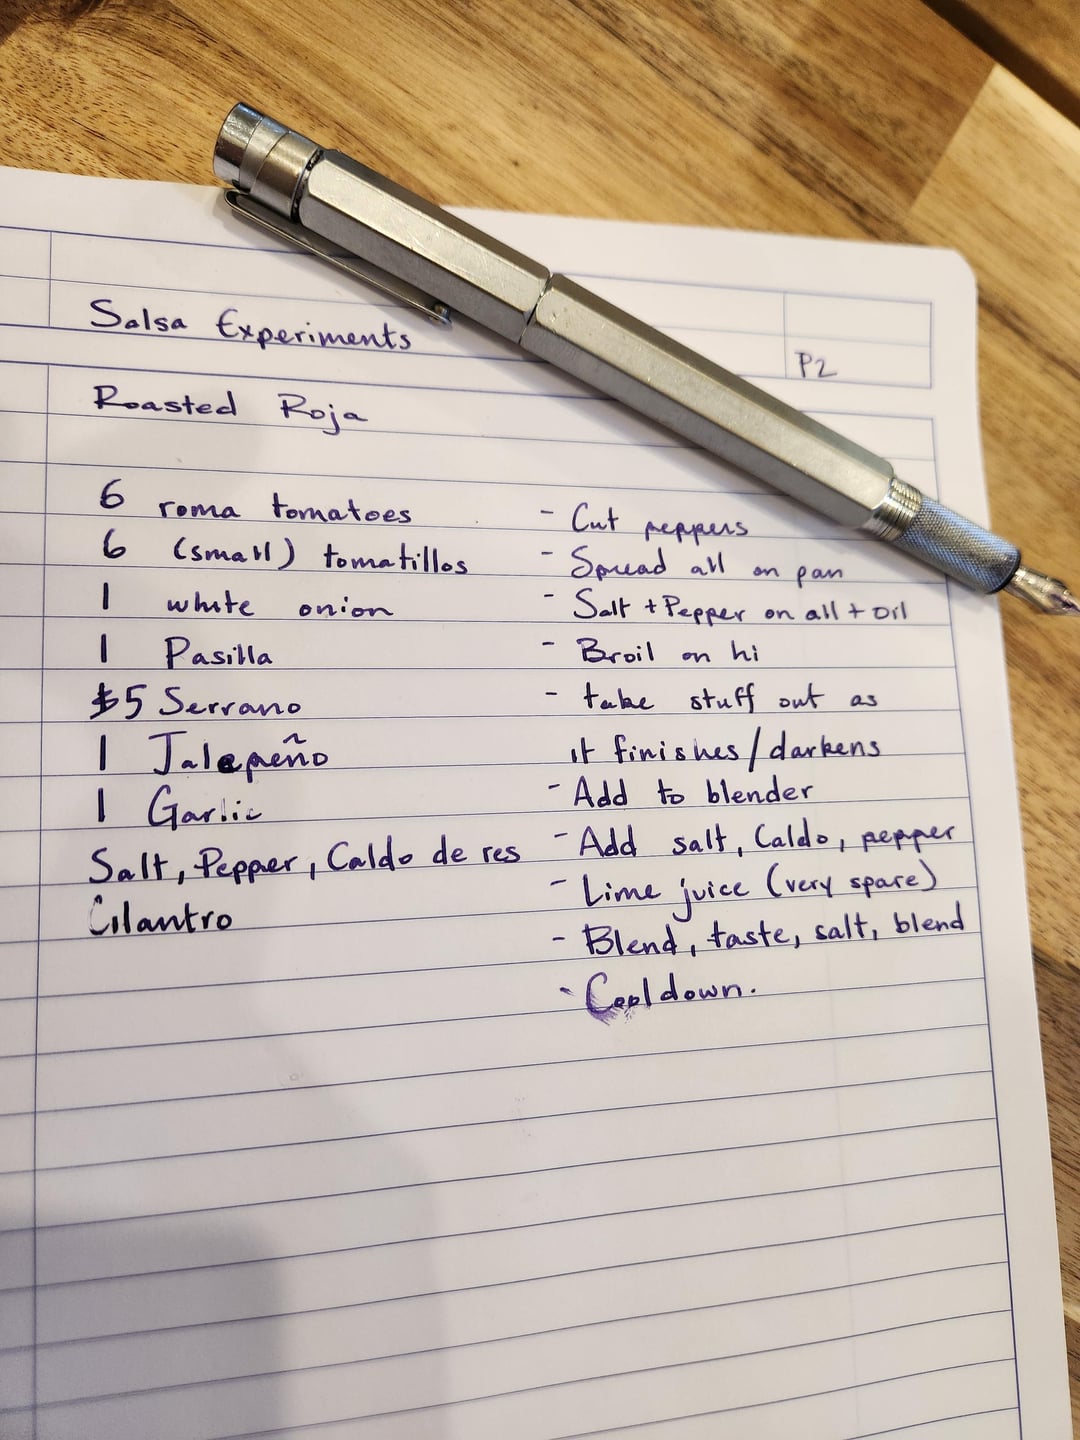 Salsa Experiments
P2
Roasted Roja
6 roma tomatoes
6 (small) tomatillos
1 white onion
1 Pasilla
5 Serrano
1 Jalepeño
1 Garlic
Salt, Pepper, Caldo de res
Cilantro
- Cut peppers
- Spread all on pan
- Salt + Pepper on all + oil
- Broil on hi
- take stuff out as
it finishes/darkens
- Add to blender
- Add salt, Caldo, pepper
- Lime juice (very spare)
- Blend, taste, salt, blend
- Cooldown.